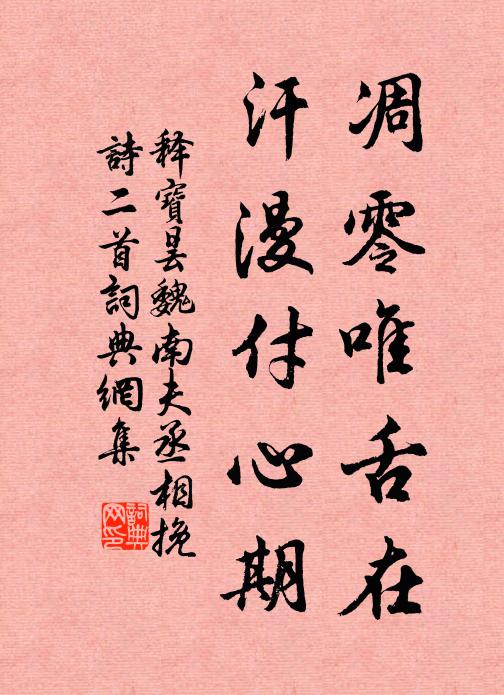 凋零唯舌在
汗漫付心期
释寶昙魏南夫丞相挽
詩二首詞典網集
詞典网印